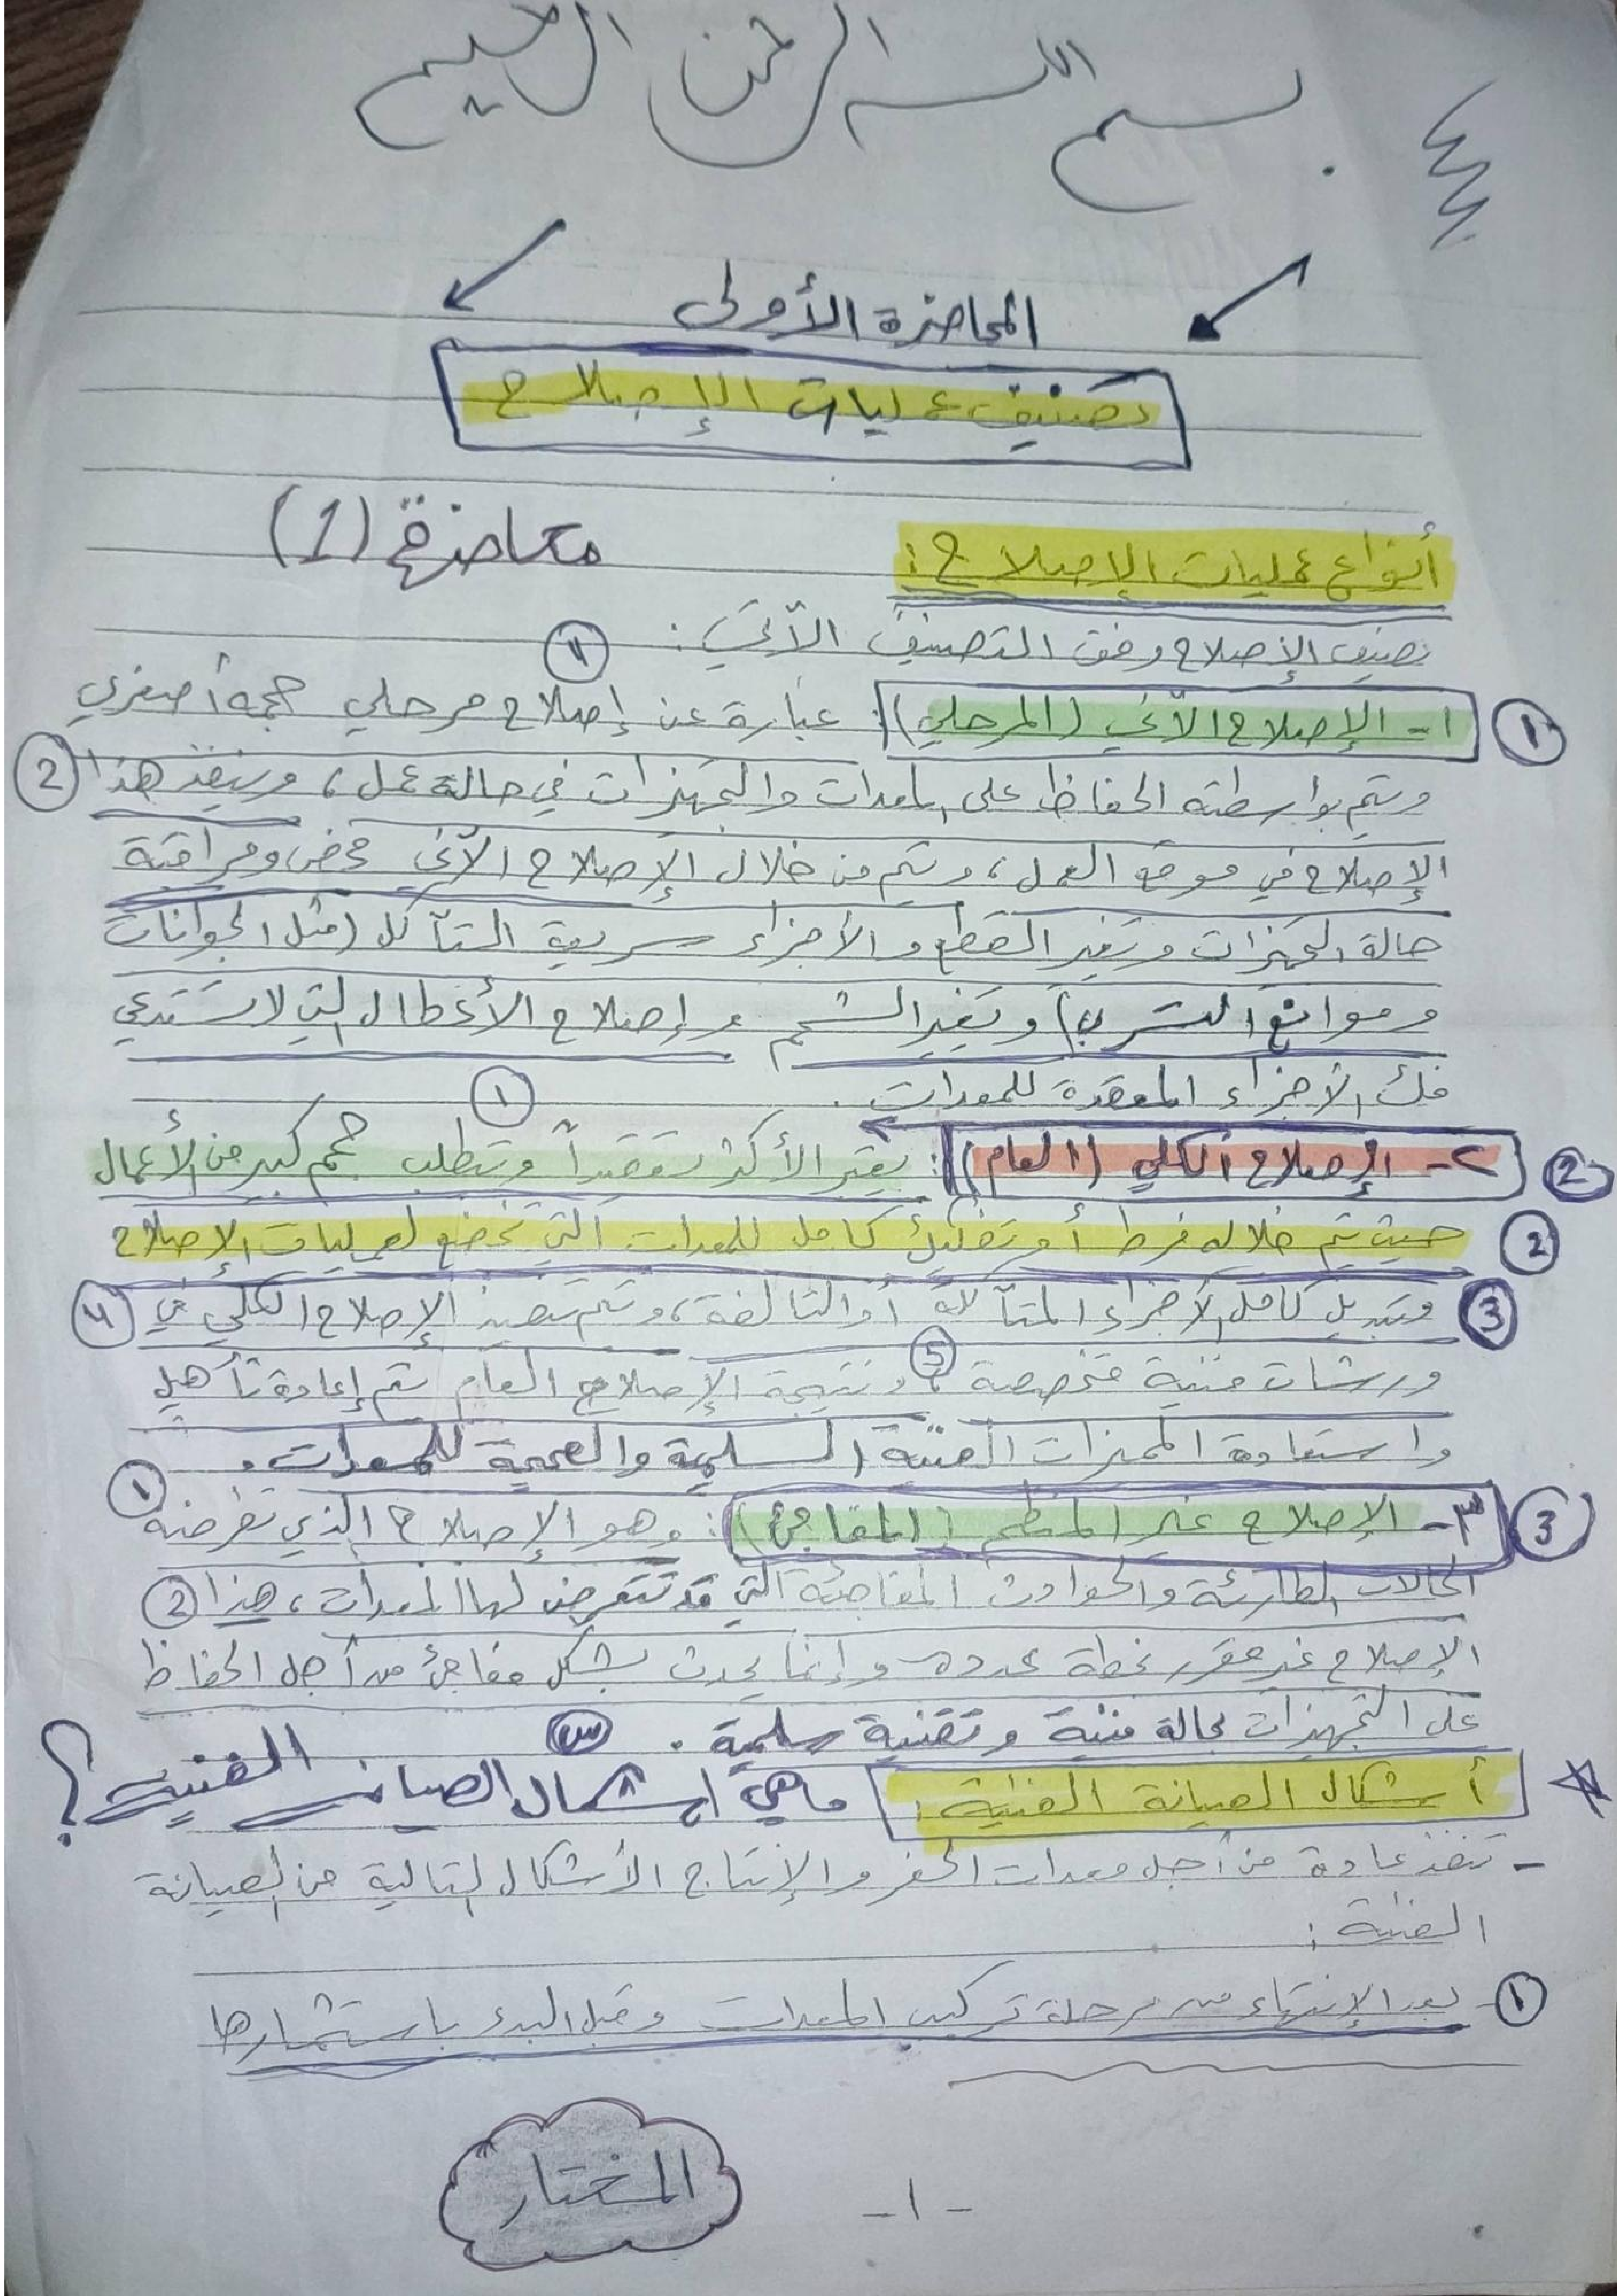 بسم الله الرحمن الرحيم
المحاضرة الأولى
تصنيف عمليات الإصلاح
محاضرة (1)
أنواع عمليات الإصلاح:
تصنيف الإصلاح وفق التصنيف الآتي:
1 ١- الإصلاح الآني (المرحلي): عبارة عن إصلاح مرحلي حجمه أصغري
ويتم بواسطته الحفاظ على المعدات والتجهيزات في حالة عمل، وينفذ هذا 2
الإصلاح في موقع العمل، ويتم من خلال الإصلاح الآني فحص ومراقبة
حالة التجهيزات وتغير القطع والأجزاء سريعة التآكل (مثل الجوانات
وموانع التسرب) وتغير الشحم وإصلاح الأعطال التي لا تستدعي
فك الأجزاء المعقدة للمعدات.
2 ٢- الإصلاح الكلي (العام): يعتبر الأكثر تعقيداً ويتطلب حجم كبير من الأعمال ١
2 حيث يتم خلاله فرط أو تفكيك كامل للمعدات التي تخضع لعمليات الإصلاح
3 وتبديل كامل الأجزاء المتآكلة أو التالفة، ويتم تنفيذ الإصلاح الكلي في
ورشات فنية متخصصة، 5 ونتيجة الإصلاح العام يتم إعادة تأهيل
واستعادة المميزات الفنية السليمة والصحيحة للمعدات.
3 ٣- الإصلاح غير المنظم (المفاجئ): وهو الإصلاح الذي تفرضه ١
الحالات الطارئة والحوادث المفاجئة التي قد تتعرض لها المعدات، هذا 2
الإصلاح غير مقرر بخطة محددة وإنما يحدث بشكل مفاجئ من أجل الحفاظ
على التجهيزات بحالة فنية وتقنية سليمة.
أشكال الصيانة الفنية: ماهي أشكال الصيانة الفنية؟ س
- تنفذ عادة من أجل معدات الحفر والإنتاج الأشكال التالية من الصيانة
الفنية:
١- بعد الإنتهاء من مرحلة تركيب المعدات وقبل البدء باستثمارها
المختار
- ١ -